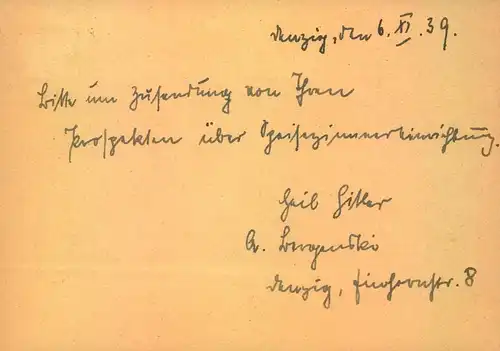 Danzig, den 6. XI. 39.
Bitte um Zusendung von Ihren
Prospekten über Speisezimmereinrichtung.
Heil Hitler
A.
Danzig, 8